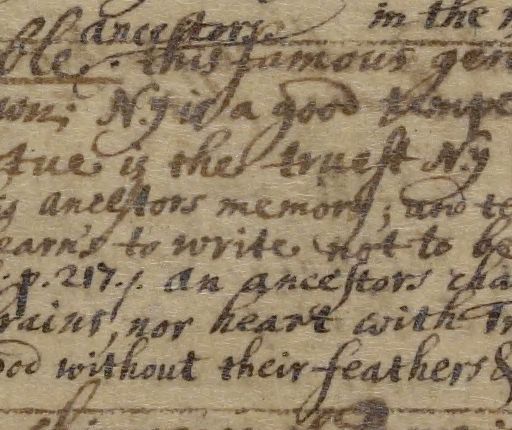 ancestors. in the
ble. this famous gen
N.y is a good tempe
tue is the truest N.y
ancestors memory; and te
earn's to write not to be
p. 217. An ancestors cha
rains, nor heart with
ood without their feathers &